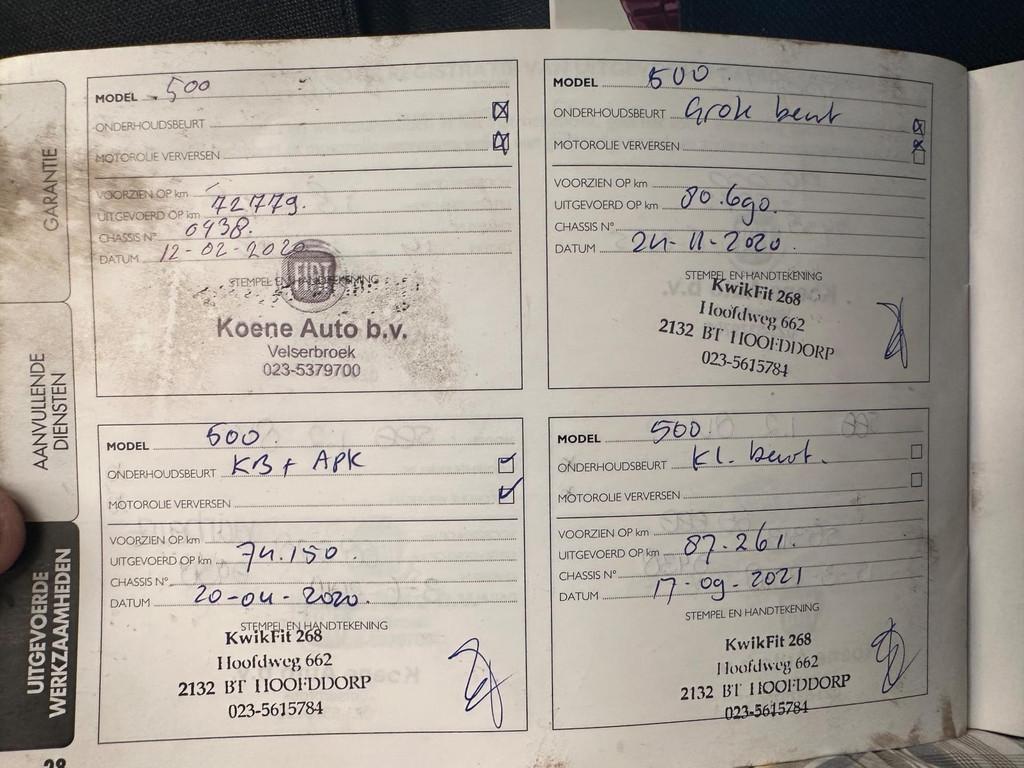 GARANTIE
AANVULLENDE
DIENSTEN
UITGEVOERDE
WERKZAAMHEDEN
MODEL 500
ONDERHOUDSBEURT
MOTOROLIE VERVERSEN
VOORZIEN OP km
UITGEVOERD OP km 72779.
CHASSIS N° 0438.
DATUM 12-02-2020
STEMPEL EN HANDTEKENING
FIAT
Koene Auto b.v.
Velserbroek
023-5379700
MODEL 500.
ONDERHOUDSBEURT Grote beurt
MOTOROLIE VERVERSEN
VOORZIEN OP km
UITGEVOERD OP km 80.690.
CHASSIS N°
DATUM 24-11-2020.
STEMPEL EN HANDTEKENING
KwikFit 268
Hoofdweg 662
2132 BT HOOFDDORP
023-5615784
MODEL 500.
ONDERHOUDSBEURT KB + APK
MOTOROLIE VERVERSEN
VOORZIEN OP km
UITGEVOERD OP km 74.150.
CHASSIS N°
DATUM 20-04-2020.
STEMPEL EN HANDTEKENING
KwikFit 268
Hoofdweg 662
2132 BT HOOFDDORP
023-5615784
MODEL 500.
ONDERHOUDSBEURT Kl. beurt.
MOTOROLIE VERVERSEN
VOORZIEN OP km
UITGEVOERD OP km 87.261.
CHASSIS N°
DATUM 17-09-2021
STEMPEL EN HANDTEKENING
KwikFit 268
Hoofdweg 662
2132 BT HOOFDDORP
023-5615784
28